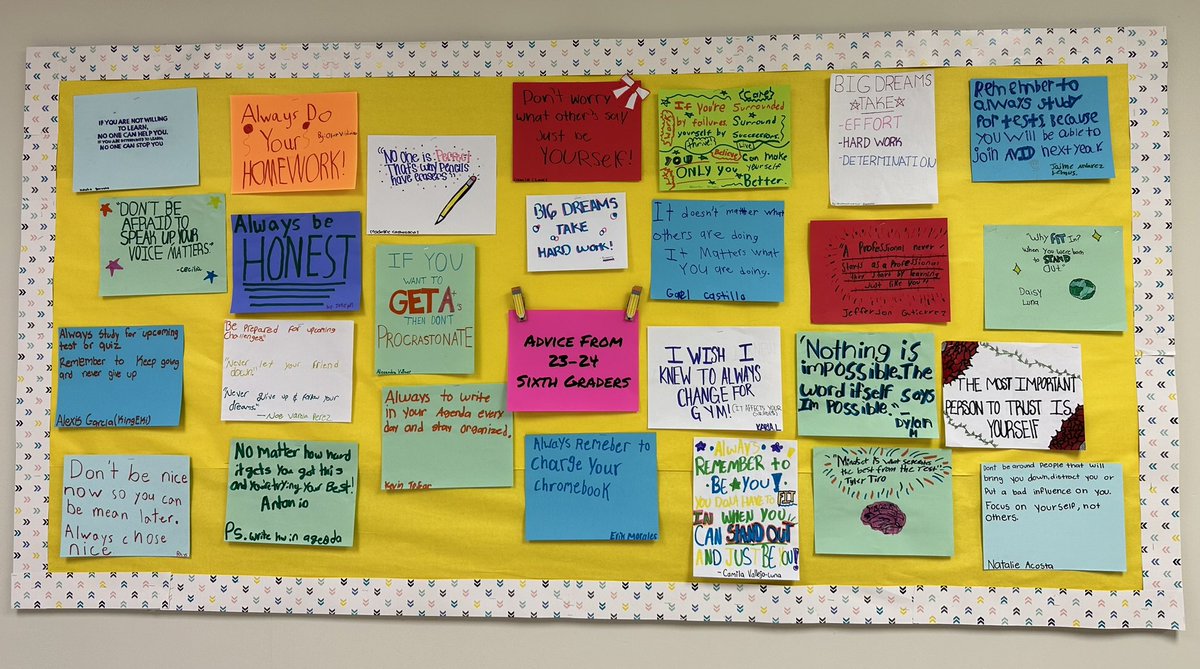 IF YOU ARE NOT WILLING
TO LEARN,
NO ONE CAN HELP YOU.
IF YOU ARE DETERMINED TO LEARN,
NO ONE CAN STOP YOU
Always Do
Your
HOMEWORK!
"No one is Perfect
That's why Pencils
have erasers"
Don't worry
what other's say
Just be
YOURSELF!
Care
If You're Surrounded
by failures. Surround
yourself by
Successions.
Work
thrive!
Live
YOU
Believe
Can make
yourself
ONLY YOU
Better.
BIG DREAMS
TAKE
-EFFORT
-HARD WORK
-DETERMINATION
Remember to
always study
for tests because
you will be able to
join AVID next year.
Jaime
"DON'T BE
AFRAID TO
SPEAK UP YOUR
VOICE MATTERS."
-Cecilia
Always be
HONEST
IF YOU
WANT TO
GET A+s
THEN DON'T
PROCRASTONATE
BIG DREAMS
TAKE
HARD WORK!
It doesn't matter what
others are doing
It Matters what
YOU are doing.
Gael Castillo
"A Professional never
Starts as a Professional
they start by learning
Just like you"
Jefferson Gutierrez
"Why FIT In?
When you were born
to STAND
OUT."
Daisy
Luna
Always study for upcoming
test or quiz
Remember to Keep going
and never give up
Alexis Garcia (KingEki)
Be Prepared for upcoming
challenges"
"Never let your friend
down."
"Never give up & follow your
dreams"
-Noe Varon Perez
Always to write
in your Agenda every
day and stay organized.
Kevin
ADVICE FROM
23-24
SIXTH GRADERS
I WISH I
KNEW TO ALWAYS
CHANGE FOR
GYM! (IT AFFECTS YOUR
KAYLA L.
'Nothing is
impossible. The
word itself says
Im Possible.'-
Dylan
M
THE MOST IMPORTANT
PERSON TO TRUST IS
YOURSELF
Don't be nice
now so you can
be mean later.
Always chose
nice.
No matter how hard
it gets You got this
and You're trying Your Best!
Antonio
Ps. write hw in agenda
Always Remeber to
Charge Your
chromebook
Erix Morales
ALWAYS
REMEMBER to
BE YOU!
YOU DON'T HAVE TO FIT
IN WHEN YOU
CAN STAND OUT
AND JUST BE YOU!
-Camilla Vallejo-Luna
Mindset is what seperates
the best from the rest
Tyler Tiro
Dont be around people that will
bring you down, distract you or
Put a bad influence on you.
Focus on yourself, not
others.
Natalie Acosta